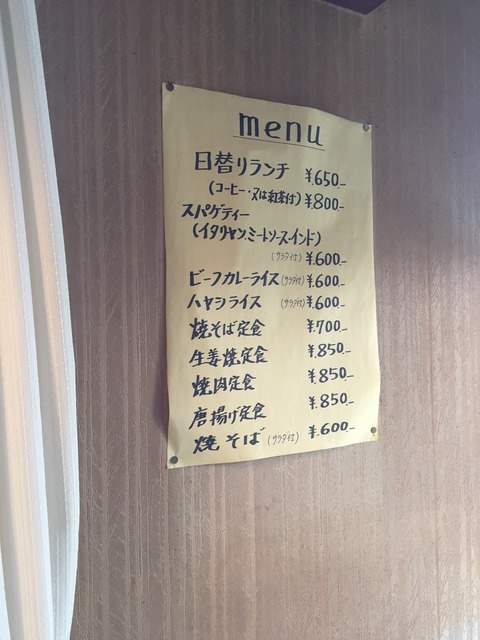 menu
日替りランチ ¥.650.-
(コーヒー・又は紅茶付) ¥.800.-
スパゲティー
(イタリヤン.ミートソース.インド)
(サラダ付) ¥.600.-
ビーフカレーライス(サラダ付) ¥.600.-
ハヤシライス (サラダ付) ¥.600.-
焼そば定食 ¥.700.-
生姜焼定食 ¥.850.-
焼肉定食 ¥.850.-
唐揚げ定食 ¥.850.-
焼そば (サラダ付) ¥.600.-